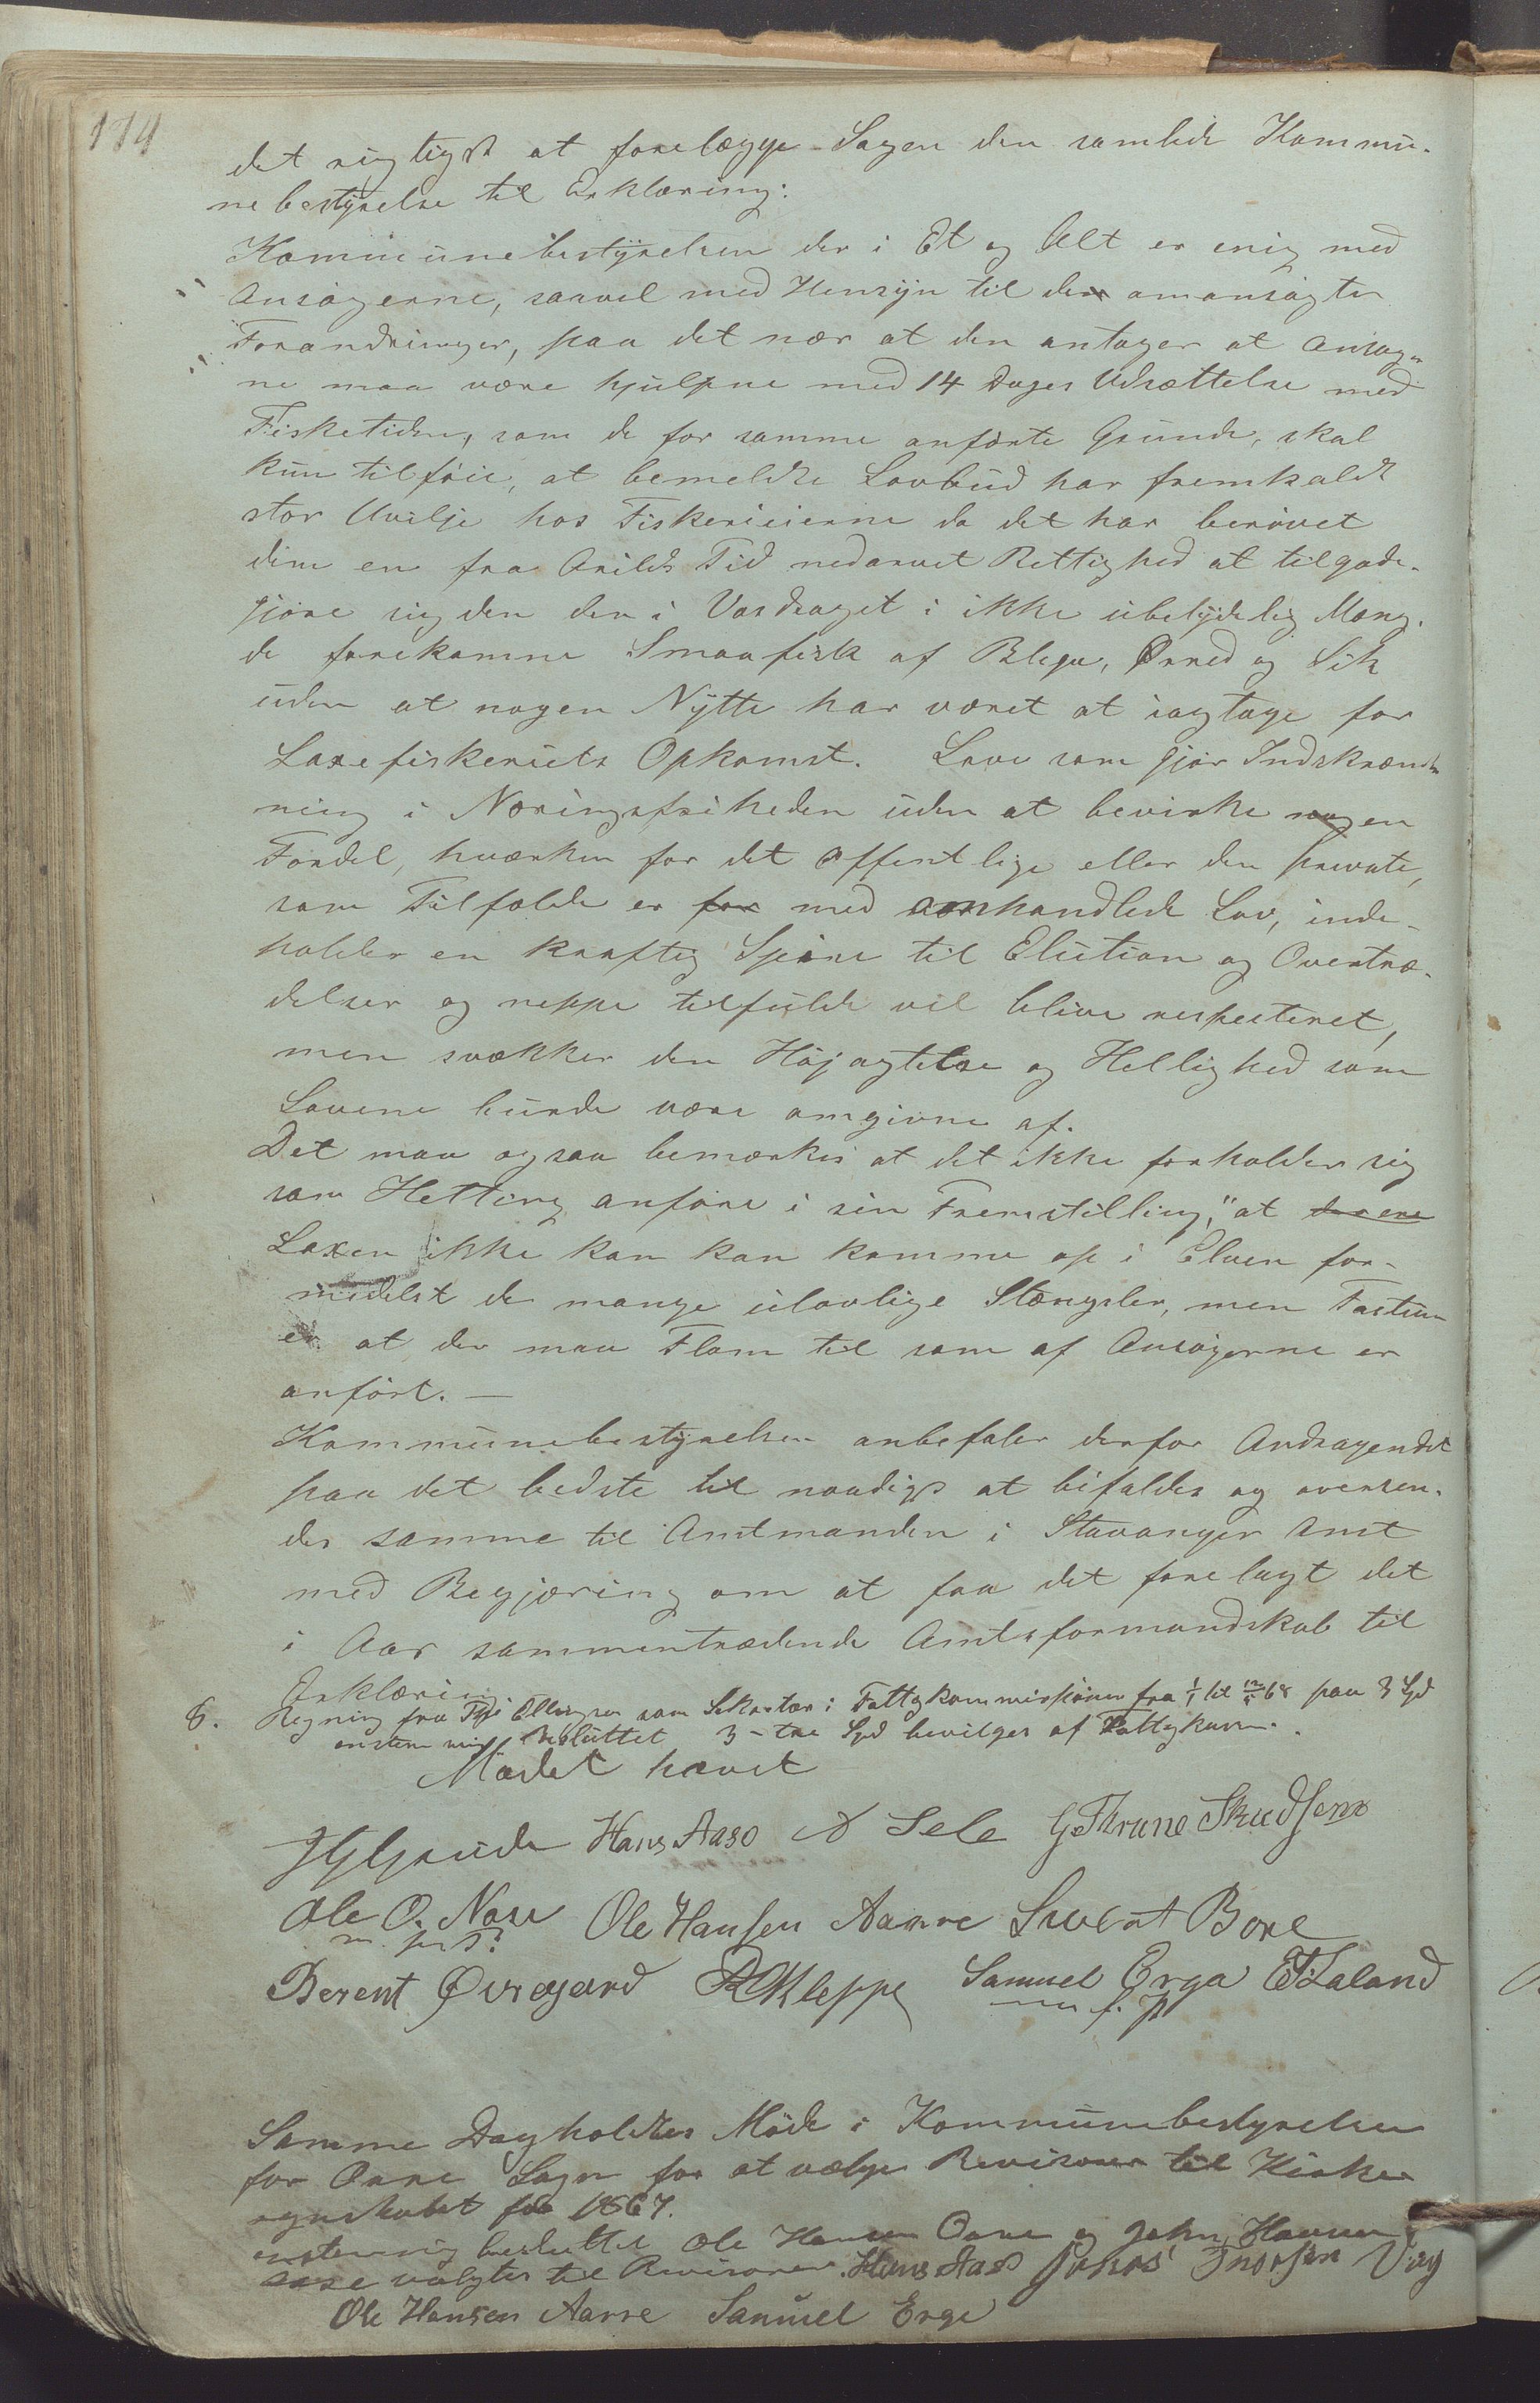 174
det rigtigst at forelægge Sagen den samlede Kommu-
nebestyrelse til Erklæring:
Kommunebestyrelsen der i Et og Alt er enig med
Ansøgerne, saavel med Hensyn til den omansøgte
Forandringer, paa det nær at den antager at Ansøger-
ne maa være hjulpne med 14 Dages Udsættelse med
Fisketiden, som de for samme anførte Grunde, skal
kun tilføie, at bemeldte Lovbud har fremkaldt
stor Uvilje hos Fiskerieierne da det har berøvet
dem en fra Arilds Tid nedarvet Rettighed at tilgode-
gjøre sig den den i Vasdraget i ikke ubetydelig Mæng-
de forekomne Smaafisk af Blege, Ørred og Sik
uden at nogen Nytte har været at iagtage for
Laxefiskeriets Opkomst. Love som gjør Indskrænk-
ning i Næringsfriheden uden at bevirke nogen
Fordel, hværken for det offentlige eller den private,
som Tilfælde er for med omhandlede Lov, inde-
holder en kraftig Spire til Elution og Overtræ-
delser og neppe tilfulde vil blive respecteret,
men svækker den Højagtelse og Hellighed som
Lovene burde være omgivne af.
Det maa ogsaa bemærkes at det ikke forholder sig
som Hetting anføre i sin Fremstilling, "at
Laxen ikke kan kan komme op i Elven for-
midelst de mange ulovlige Stængsler, men Factum
er at der maa Flom til som af Ansøgerne er
anført. —
Kommunebestyrelsen anbefaler derfor Andragendet
paa det bedste til naadigst at bifaldes og oversen-
des samme til Amtmanden i Stavanger Amt
med Begjæring om at faa det forelagt det
i Aar sammentrædende Amtsformandskab til
Erklæring
8. Regning fra Ellingsen som Sekretær i Fattigkommissionen fra 1/1 til 68 paa 3 Spd
enstemmig besluttet 3 - tre Spd bevilges af Fattigkassen.
Mødet hævet
Hans Aaso A Sele G Thrane Skudsem
Ole O. Nose Ole Hansen Aanre Sivert Bore
m. p. P.
Berent Øvregard R Kleppe Samuel Erga E T Laland
m. f. P
Samme Dag holdtes Møde i Kommunebestyrelsen
for Orre Sogn for at vælge Revisorer til Kirke
regnskabet for 1867.
enstemmig besluttet Ole Hansen Orre og John Hansen
valgtes til Revisorer. Hans Aaso Jonas Vig
Ole Hansen Aarre Samuel Erge